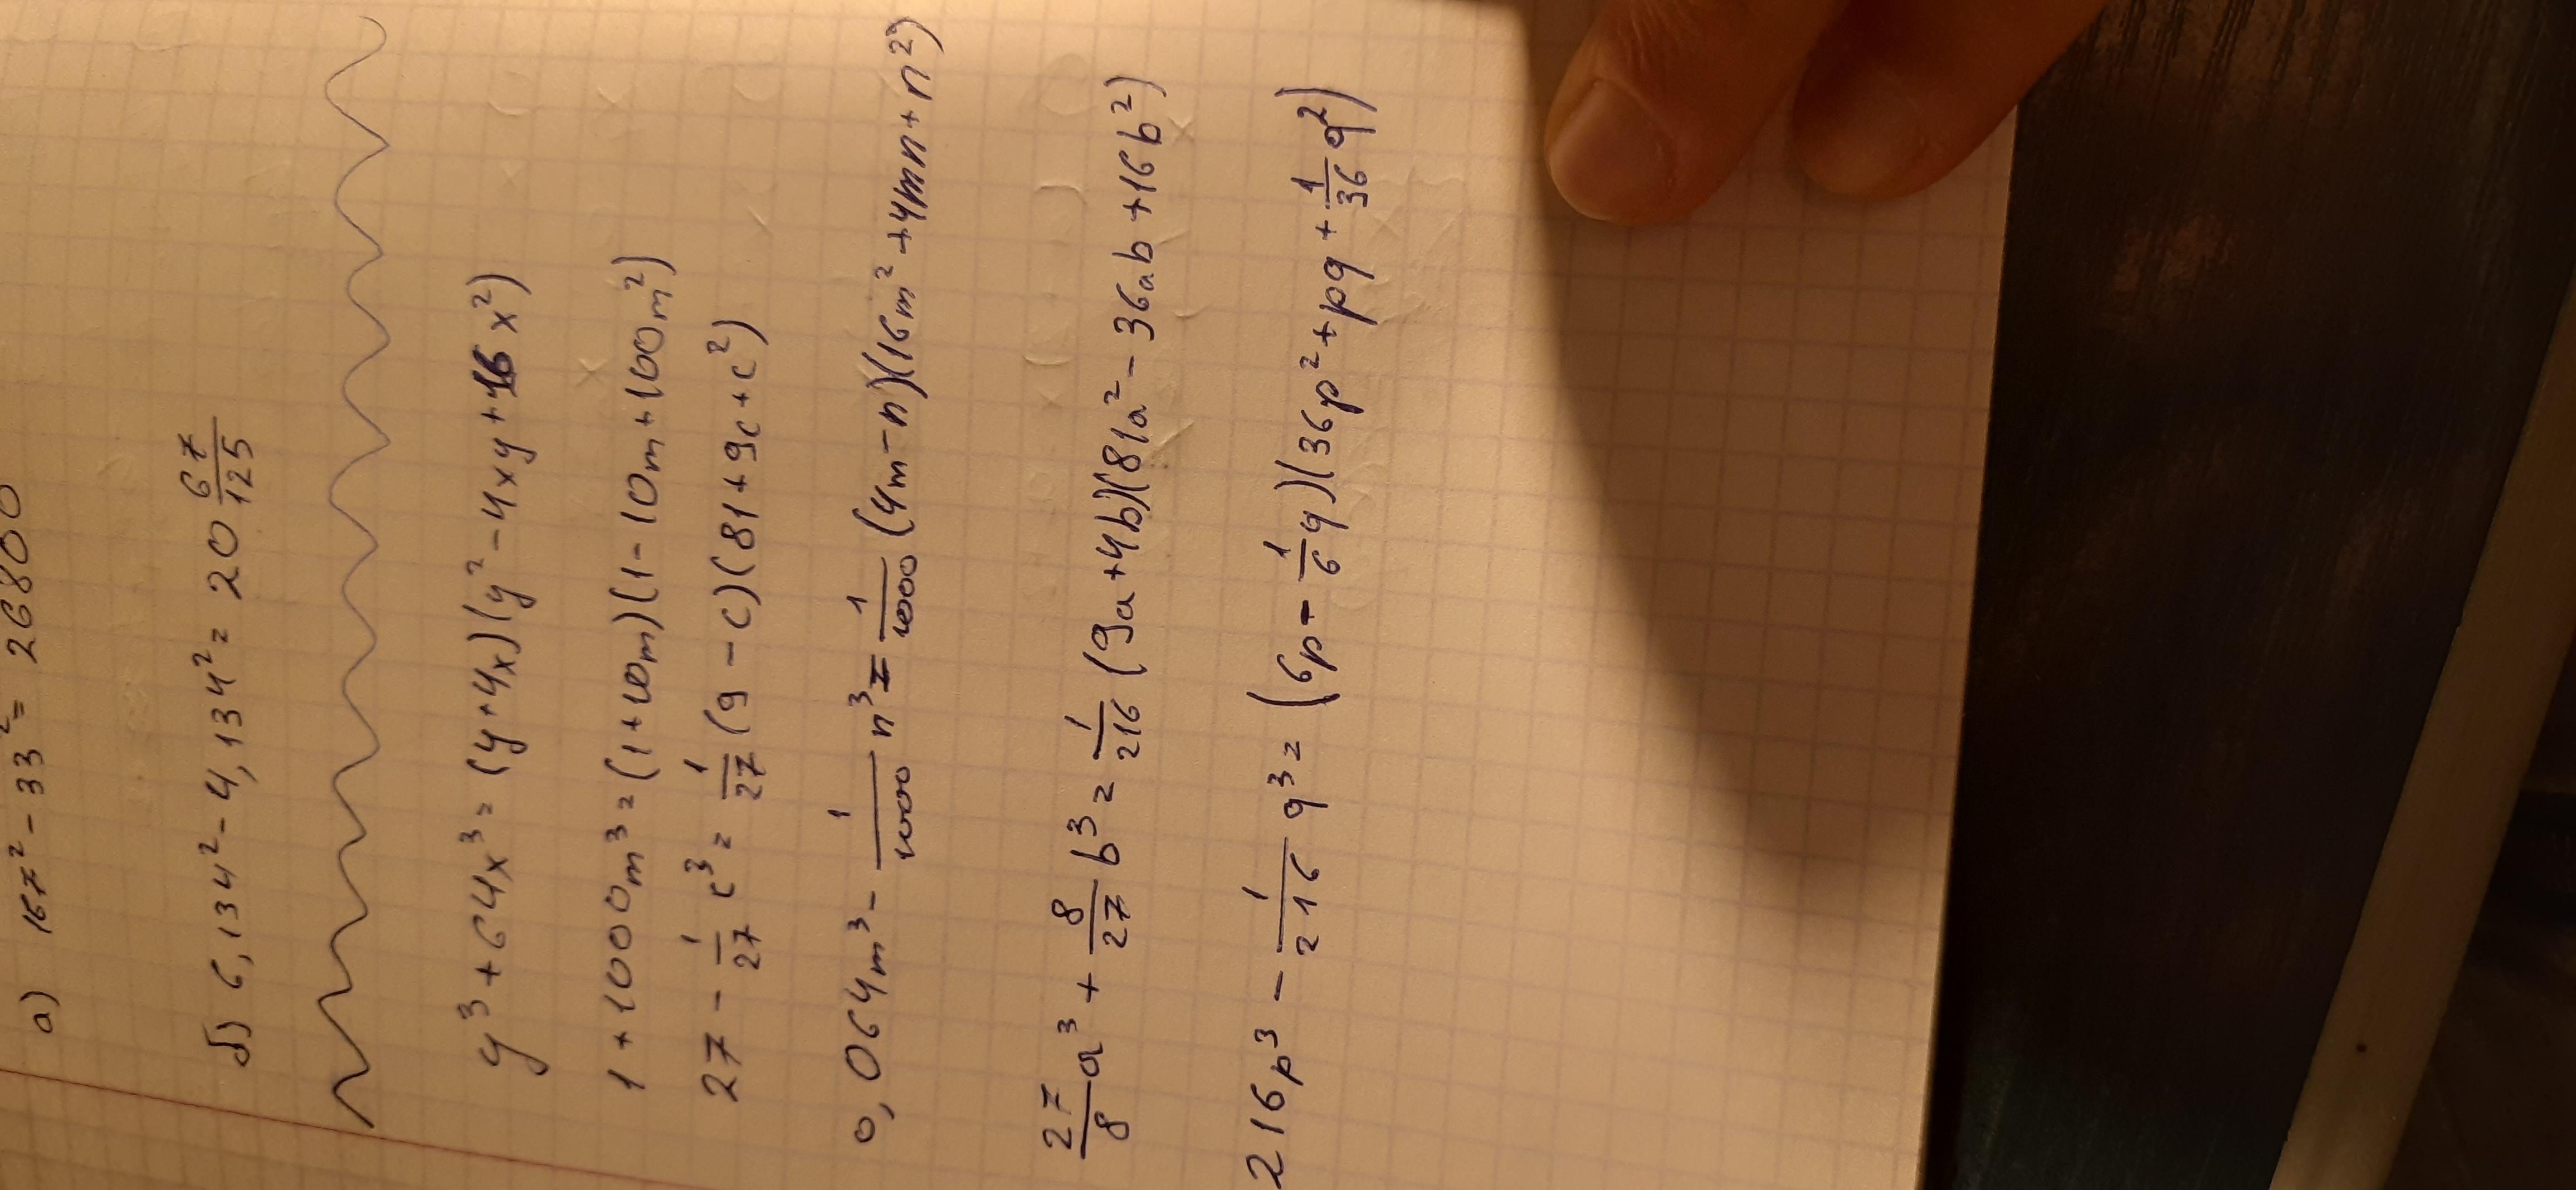 а) 167² - 33² = 26800
б) 6,134² - 4,134² = 20 67/125
y³ + 64x³ = (y+4x)(y² - 4xy + 16x²)
1 + 1000m³ = (1 + 10m)(1 - 10m + 100m²)
27 - 1/27 c³ = 1/27 (9 - c)(81 + 9c + c²)
0,064m³ - 1/1000 n³ = 1/1000 (4m - n)(16m² + 4mn + n²)
27/8 a³ + 8/27 b³ = 1/216 (9a + 4b)(81a² - 36ab + 16b²)
216p³ - 1/216 q³ = (6p - 1/6 q)(36p² + pq + 1/36 q²)